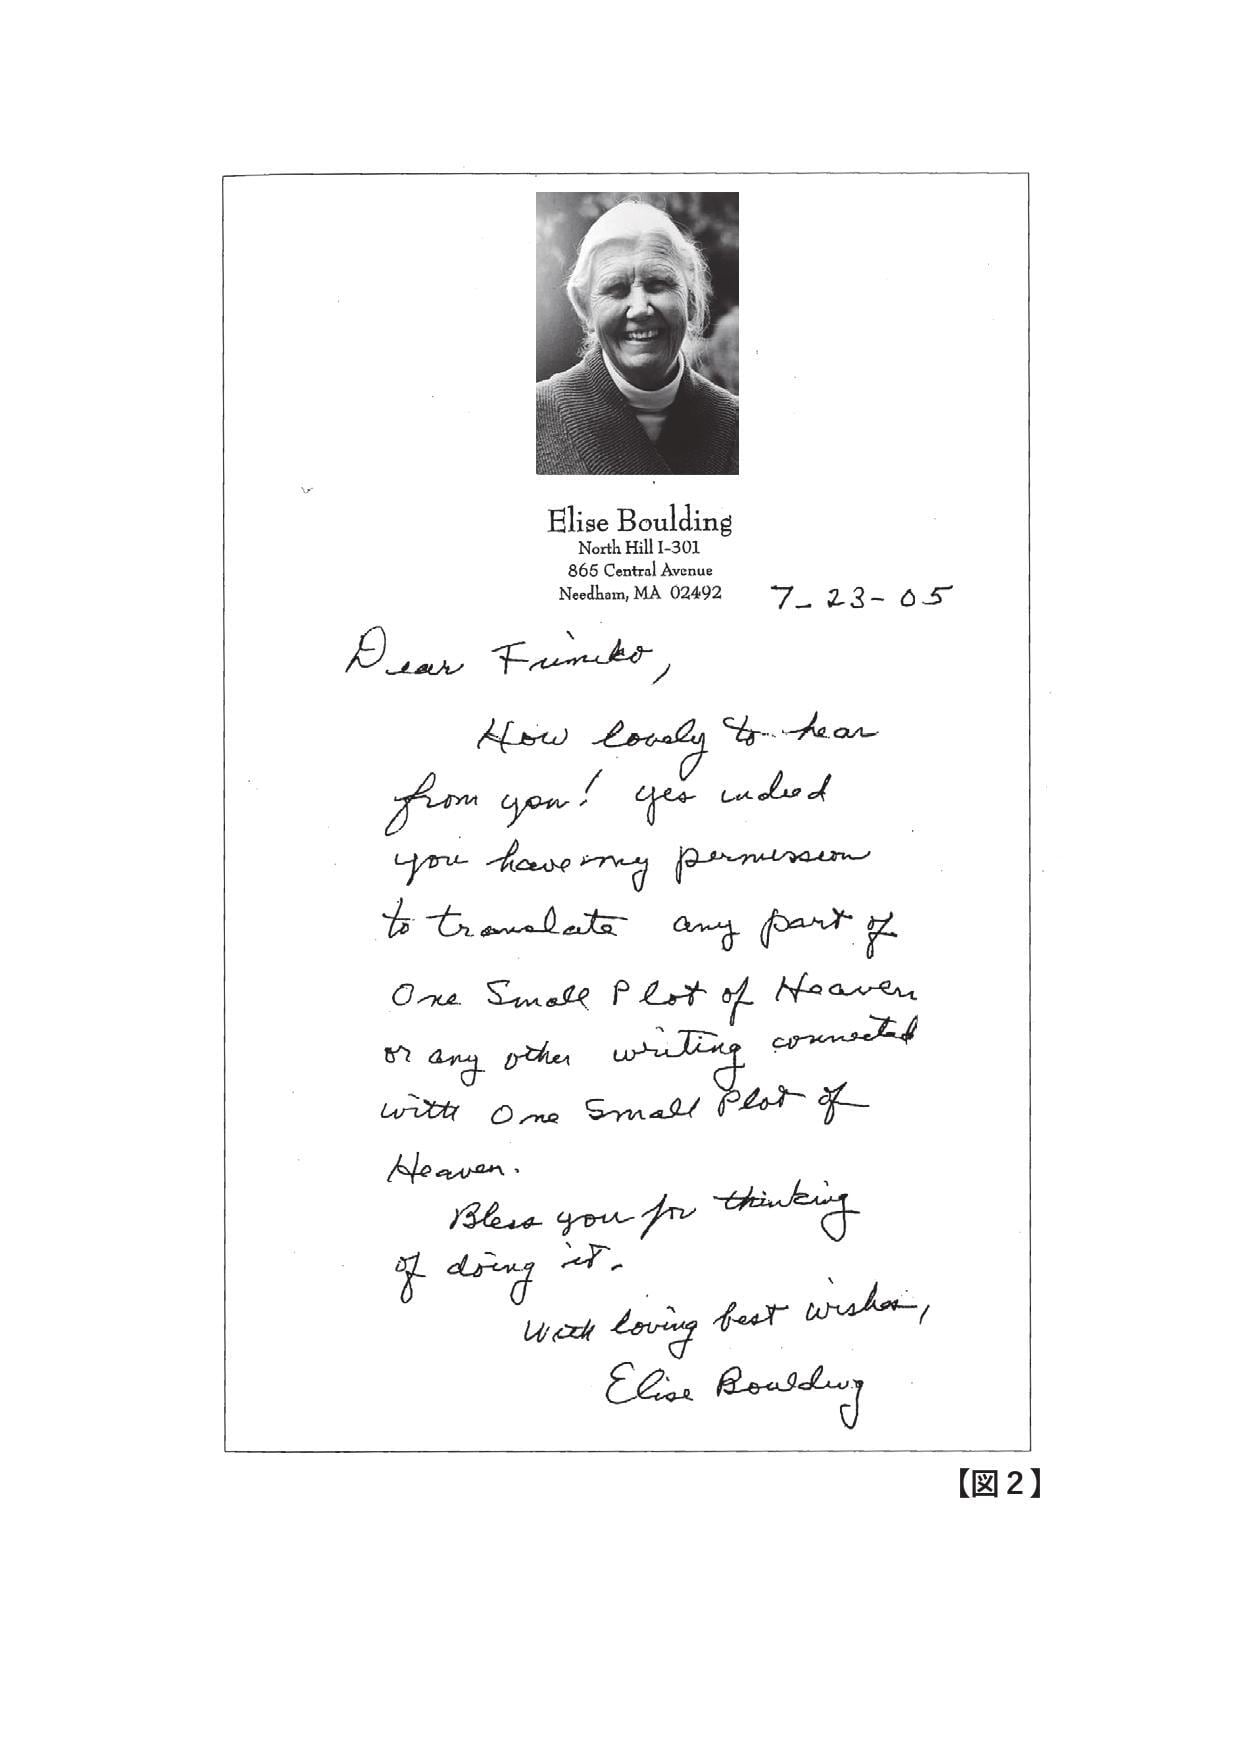 Elise Boulding
North Hill I-301
865 Central Avenue
Needham, MA 02492
7-23-05
Dear Fumiko,
How lovely to hear
from you! yes indeed
you have my permission
to translate any part of
One Small Plot of Heaven
or any other writing connected
with One Small Plot of
Heaven.
Bless you for thinking
of doing it.
With loving best wishes,
Elise Boulding
【図2】